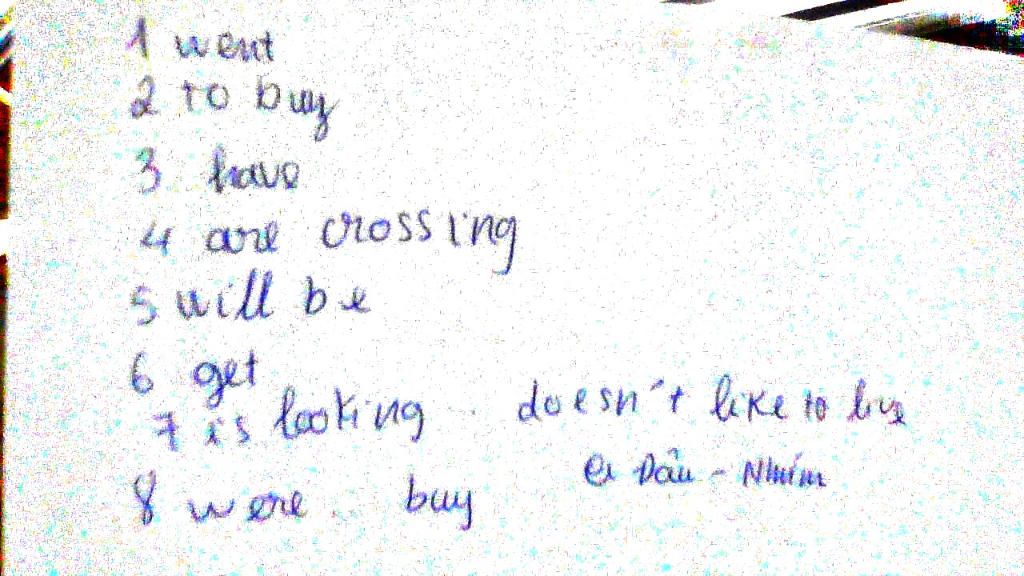 1 went
2 to buy
3 have
4 are crossing
5 will be
6 get
7 is looking .. doesn't like to live
8 were .. buy
Dâu - Nhím